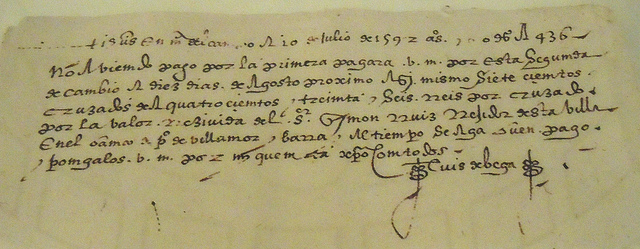 + ihs En md del canpo A 10 de Julio de 1592 aºs. A 436
No Aviemdo pago por la primera pagara v. m. por Esta Segumda
de cambio A diez dias de Agosto proximo A Si mismo Siete ciemtos
cruzados de A quatrociemtos y treimta y Seis Reis por cruzado
por la valor Recivida del Sr Symon Ruiz Rejidor desta villa
En el bamco de pº de villamor y barra, Al tiempo se Aga buen pago
y pomgalos v. m. por com todos
Luis de bega